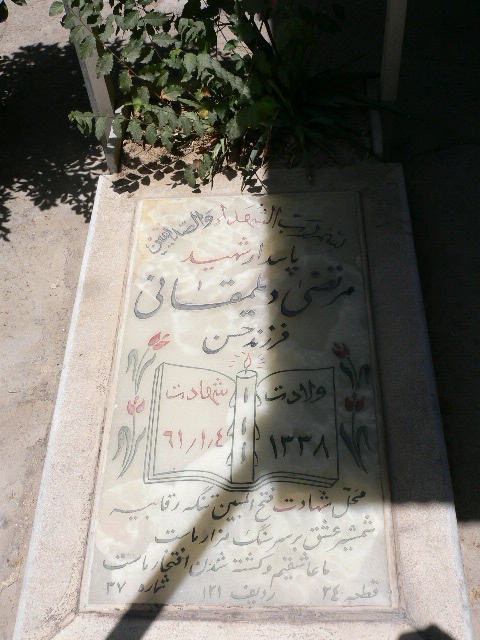 بسم رب الشهداء والصدیقین
پاسدار شهید
مرتضی دیلمقانی
فرزند حسن
ولادت شهادت
۱۳۳۸ ۶۱/۱/۴
محل شهادت فتح المبین تنگه رقابیه
شمشیر عشق بر سر سنگ مزار ماست
ما عاشقیم و کشته شدن افتخار ماست
قطعه ۲۴ ردیف ۱۲۱ شماره ۳۷